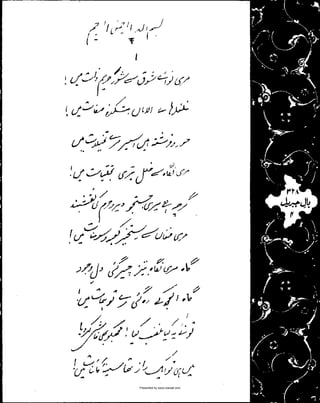 بسم اللہ الرحمٰن الرحیم
۱
میری نوائے شوق سے شور حریم ذات میں!
غلغلہ ہائے الاماں بتکدۂ صفات میں!
حور و فرشتہ ہیں اسیر میرے تخیلات میں
میری نگاہ سے خلل تیری تجلیات میں!
گرچہ ہے میری جستجو دیر و حرم کی نقشبند
میری فغاں سے رستخیز کعبہ و سومنات میں!
گاہ مری نگاہ تیز چیر گئی دل وجود
گاہ الجھ کے رہ گئی میرے توہمات میں!
تو نے یہ کیا غضب کیا! مجھ کو بھی فاش کر دیا
میں ہی تو ایک راز تھا سینۂ کائنات میں!
بال جبریل
Presented by www.iqbalai.com